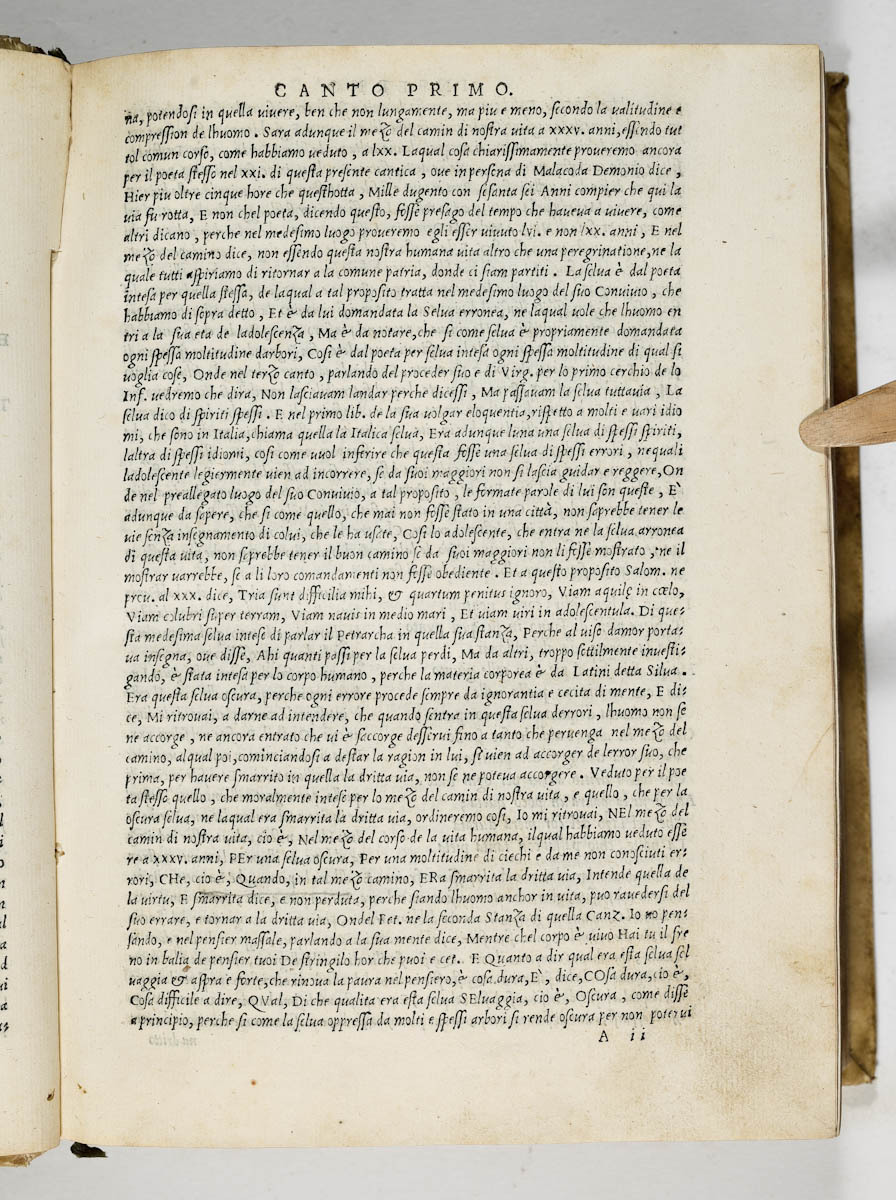 CANTO PRIMO.
na, potendosi in quella viuere, ben che non lungamente, ma piu e meno, secondo la ualitudine e
compression de lhuomo. Sara adunque il mezo del camin di nostra uita a xxxv. anni, essendo tut
tol comun corso, come habbiamo ueduto, a lxx. Laqual cosa chiarissimamente proueremo ancora
per il poeta stesso nel xxi. di questa presente cantica, oue in persona di Malacoda Demonio dice,
Hier piu oltre cinque hore che questhotta, Mille dugento con sesanta sei Anni compier che qui la
uia fu rotta, E non chel poeta, dicendo questo, fosse presago del tempo che haueua a uiuere, come
altri dicano, perche nel medesimo luogo proueremo egli esser uiuuto lvi. e non lxx. anni, E nel
mezo del camino dice, non essendo questa nostra humana uita altro che una peregrinatione, ne la
quale tutti aspiriamo di ritornar a la comune patria, donde ci siam partiti. La selua è dal poeta
intesa per quella stessa, de laqual a tal proposito tratta nel medesimo luogo del suo Conuiuio, che
habbiamo di sopra detto, Et è da lui domandata la Selua erronea, ne laqual uole che lhuomo en
tri a la sua eta de ladolescenza, Ma è da notare, che si come selua è propriamente domandata
ogni spessa moltitudine darbori, Cosi è dal poeta per selua intesa ogni spessa moltitudine di qual si
uoglia cose, Onde nel terzo canto, parlando del proceder suo e di Virg. per lo primo cerchio de lo
Inf. uedremo che dira, Non lasciauam landar perche dicessi, Ma passauam la selua tuttauia, La
selua dico di spiriti spessi. E nel primo lib. de la sua uolgar eloquentia, rispetto a molti e uari idio
mi, che sono in Italia, chiama quella la Italica selua, Era adunque luna una selua di spessi spiriti,
laltra di spessi idiomi, cosi come uuol inferire che questa fosse una selua di spessi errori, nequali
ladolescente legiermente uien ad incorrere, se da suoi maggiori non si lascia guidar e reggere, On
de nel preallegato luogo del suo Conuiuio, a tal proposito, le formate parole di lui son queste, E'
adunque da sapere, che si come quello, che mai non fosse stato in una città, non saprebbe tener le
uie senza insegnamento di colui, che le ha usate, Cosi lo adolescente, che entra ne la selua arronea
di questa uita, non saprebbe tener il buon camino se da suoi maggiori non li fosse mostrato, ne il
mostrar uarrebbe, se a li loro comandamenti non fosse obediente. Et a questo proposito Salom. ne
prou. al xxx. dice, Tria sunt difficilia mihi, & quartum penitus ignoro, Viam aquilę in cœlo,
Viam colubri super terram, Viam nauis in medio mari, Et uiam uiri in adolescentula. Di que-
sta medesima selua intese di parlar il Petrarcha in quella sua stanza, Perche al uiso damor porta-
ua insegna, oue disse, Ahi quanti passi per la selua perdi, Ma da altri, troppo sottilmente inuesti-
gando, è stata intesa per lo corpo humano, perche la materia corporea è da Latini detta Silua.
Era questa selua oscura, perche ogni errore procede sempre da ignorantia e cecita di mente, E di-
ce, Mi ritrouai, a darne ad intendere, che quando sentra in questa selua derrori, lhuomo non se
ne accorge, ne ancora entrato che ui è saccorge desserui fino a tanto che peruenga nel mezo del
camino, alqual poi, cominciandosi a destar la ragion in lui, si uien ad accorger de lerror suo, che
prima, per hauere smarrito in quella la dritta uia, non se ne poteua accorgere. Veduto per il poe
ta stesso quello, che moralmente intese per lo mezo del camin di nostra uita, e quello, che per la
oscura selua, ne laqual era smarrita la dritta uia, ordineremo cosi, Io mi ritrouai, NEl mezo del
camin di nostra uita, cio è, Nel mezo del corso de la uita humana, ilqual habbiamo ueduto esse
re a xxxv. anni, PEr una selua oscura, Per una moltitudine di ciechi e da me non conosciuti er-
rori, CHe, cio è, Quando, in tal mezo camino, ERa smarrita la dritta uia, Intende quella de
la uirtu, E smarrita dice, e non perduta, perche siando lhuomo anchor in uita, puo rauedersi del
suo errare, e tornar a la dritta uia, Ondel Pet. ne la seconda Stanza di quella Canz. Io uo pen-
sando, e nel pensier massale, parlando a la sua mente dice, Mentre chel corpo è uiuo Hai tu il fre
no in balia de pensier tuoi De stringilo hor che puoi e cet. E Quanto a dir qual era esta selua sel
uaggia & aspra e forte, che rinoua la paura nel pensiero, è cosa dura, E', dice, COsa dura, cio è,
Cosa difficile a dire, QVal, Di che qualita era esta selua SEluaggia, cio è, Oscura, come disse
a principio, perche si come la selua oppressa da molti e spessi arbori si rende oscura per non poterui
A ii